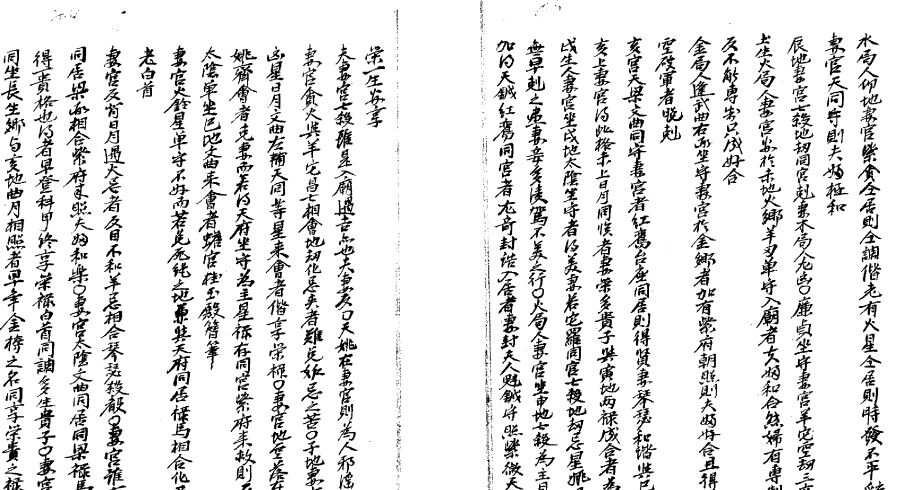 水局人卯地妻宮紫貪仝居則仝調偕老有火星仝居則時發不平
妻宮天同守則夫婦極和
辰地妻宮七殺地刼同宮剋妻木局人尤凶○廉貞坐守妻宮羊陀空刼三
土生火局人妻宮若於未地火鄉羊刃單守入廟者夫婦和合然婦有專
反不能專制只成好合
金局人逢武曲右弼坐守妻宮於金鄉者加有紫府朝照則夫婦好合且得
空隻單者晚剋
亥宮天梁文曲同守妻宮者紅鸞台座同居則得賢妻琴瑟和諧與巳
亥上妻宮得此格未上日月同候者妻榮多貴子與寅地兩祿成合者為
戌生人妻宮坐戌地太陰坐守者得美妻若陀羅同宮七殺地刼忌星姚
無早剋之患妻妾多淩駕不美之行○火局人妻宮坐申地七殺為主
加以天鉞紅鸞同宮者尤奇封誥入居者妻封夫人魁鉞守照榮做天
榮一生安享
夫妻宮七殺雖是入廟過吉亦也夫妻支○天姚在妻宮則為人邪淫
妻宮貪火與羊陀昌七相會地刼化忌夾者難免妬忌之苦○子地妻
凶星日月文曲左補天同等星來會者偕享榮祿○妻宮地空落在
姚齊會者克妻而若得天府坐守為主星祿存同宮紫府来救則
太陰單坐巳地文曲来會者蟾宮桂玉殿簪筆
妻宮火鈴星單守不好而若見死绝之地兼與天府同居祿馬相合化
老白首
妻宮反背日月過火忌者反目不和羊忌相合琴瑟殺聲○妻宮誰
同居與弼相合紫府来照夫婦和樂○妻宮太陰文曲同居同與祿馬
得貴格也得者早登科甲終享榮祿白首同調多生貴子○妻宮
同坐長生鄉旬亥地曲月相照者早年金榜之名同享榮貴之祿